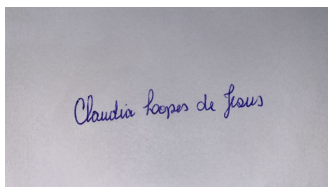 Claudia Lopes de Jesus